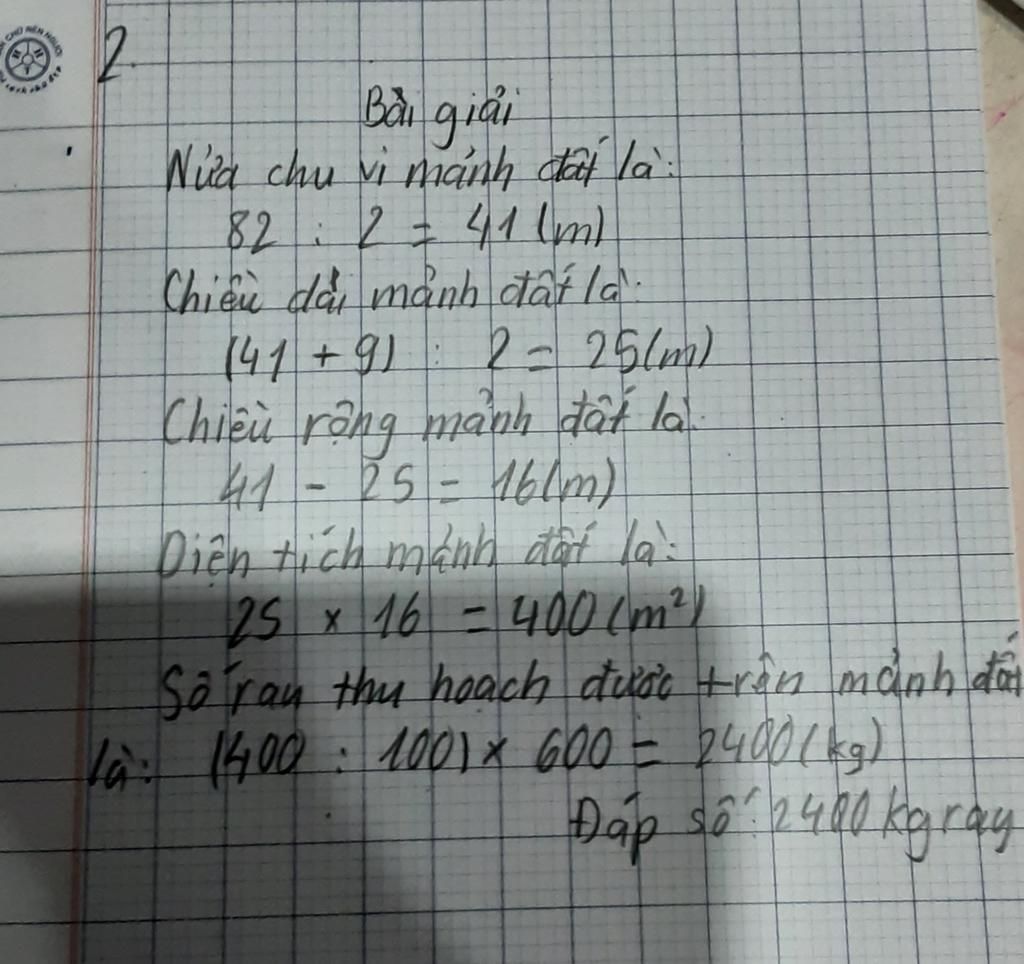 2.
Bài giải
Nửa chu vi mảnh đất là:
82 : 2 = 41 (m)
Chiều dài mảnh đất là:
(41 + 9) : 2 = 25 (m)
Chiều rộng mảnh đất là:
41 - 25 = 16 (m)
Diện tích mảnh đất là:
25 x 16 = 400 (m²)
Số rau thu hoạch được trên mảnh đất
là: (400 : 100) x 600 = 2400 (kg)
Đáp số: 2400 kg rau